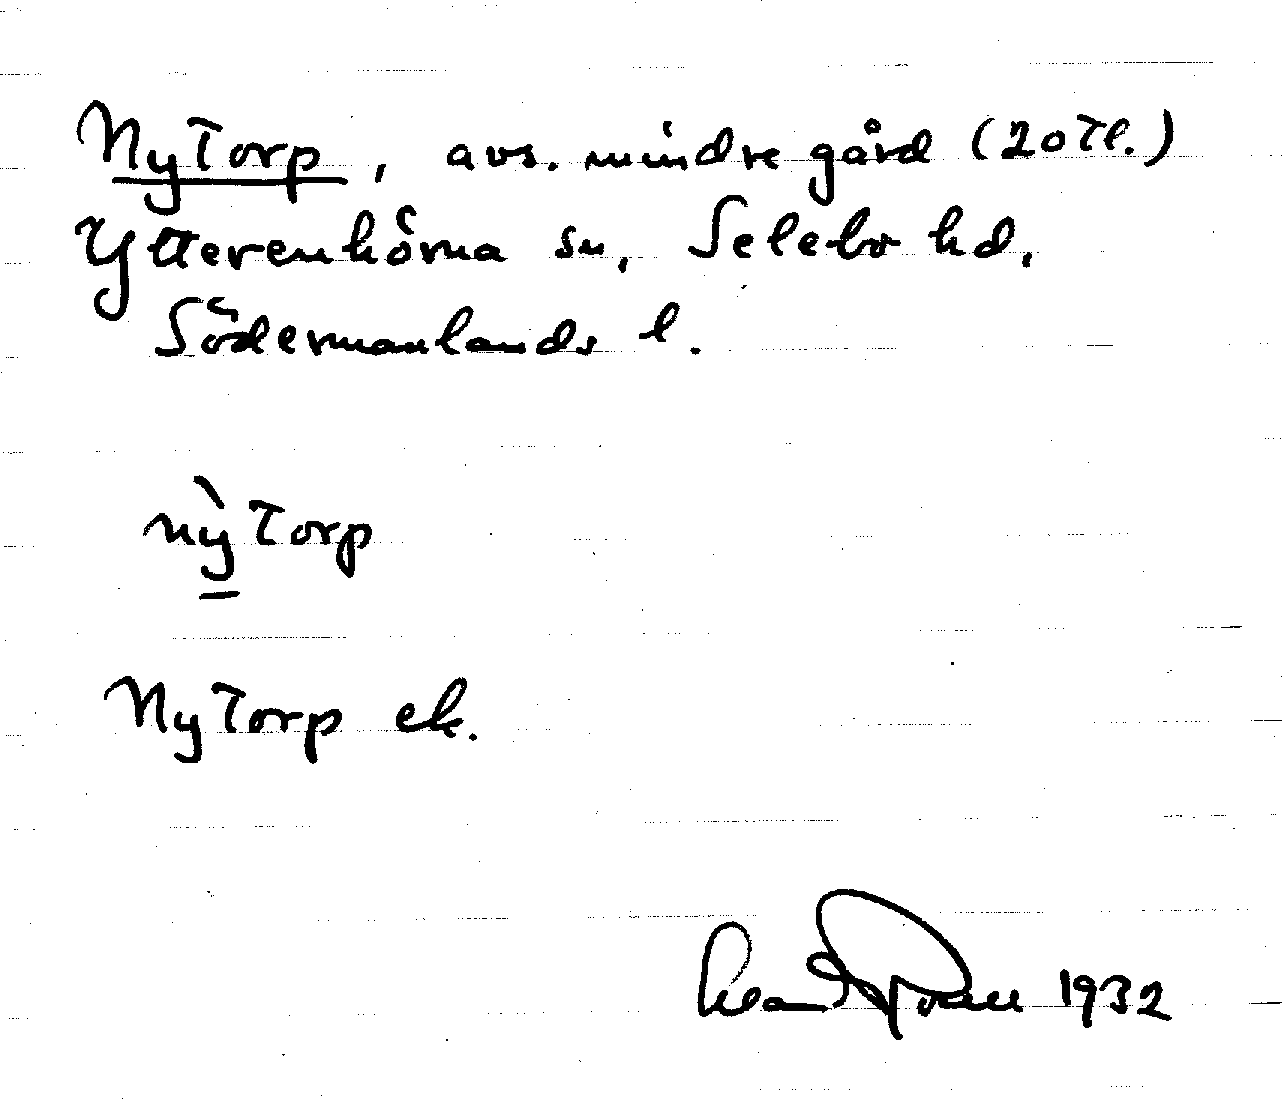 Nytorp, avs. mindre gård (20 tl.)
Ytterenhörna sn, Selebo hd,
Södermanlands l.
nỳtorp
Nytorp ek.
1932